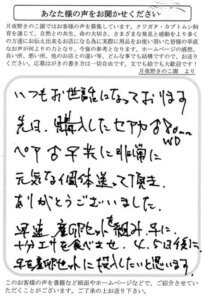 あなた様の声をお聞かせください
月夜野きのこ園ではお客様の声を募集しています。クワガタ・カブトムシ飼
育を通じて、自然との共生、命の大切さ、さまざまな発見と感動をより多く
の方達にお伝え出来るお店になる為に実際に商品をお使い頂いた皆様の率直
なお声が何よりの力となり、今後の参考となります。ホームページの感想、
良い所、悪い所、他のお店との違い等、どんな事でも結構ですので、お送り
ください。応募はがきの書き方は一切自由です。文でも絵でも大歓迎です！
月夜野きのこ園 より
いつもお世話になっております
先日、購入したセアカ
80mm
WD
ペア 古早矢に非常に
元気な個体送って頂き、
ありがとうございました。
早速、産卵セットを組み
十分エサを食べませ、4、5日後に、
産卵セットに投入したいと思います。
このお客様の声を書籍など紙面やホームページなどで、ご紹介させてい
ただくことがございます。ご了承の上お送り下さい。